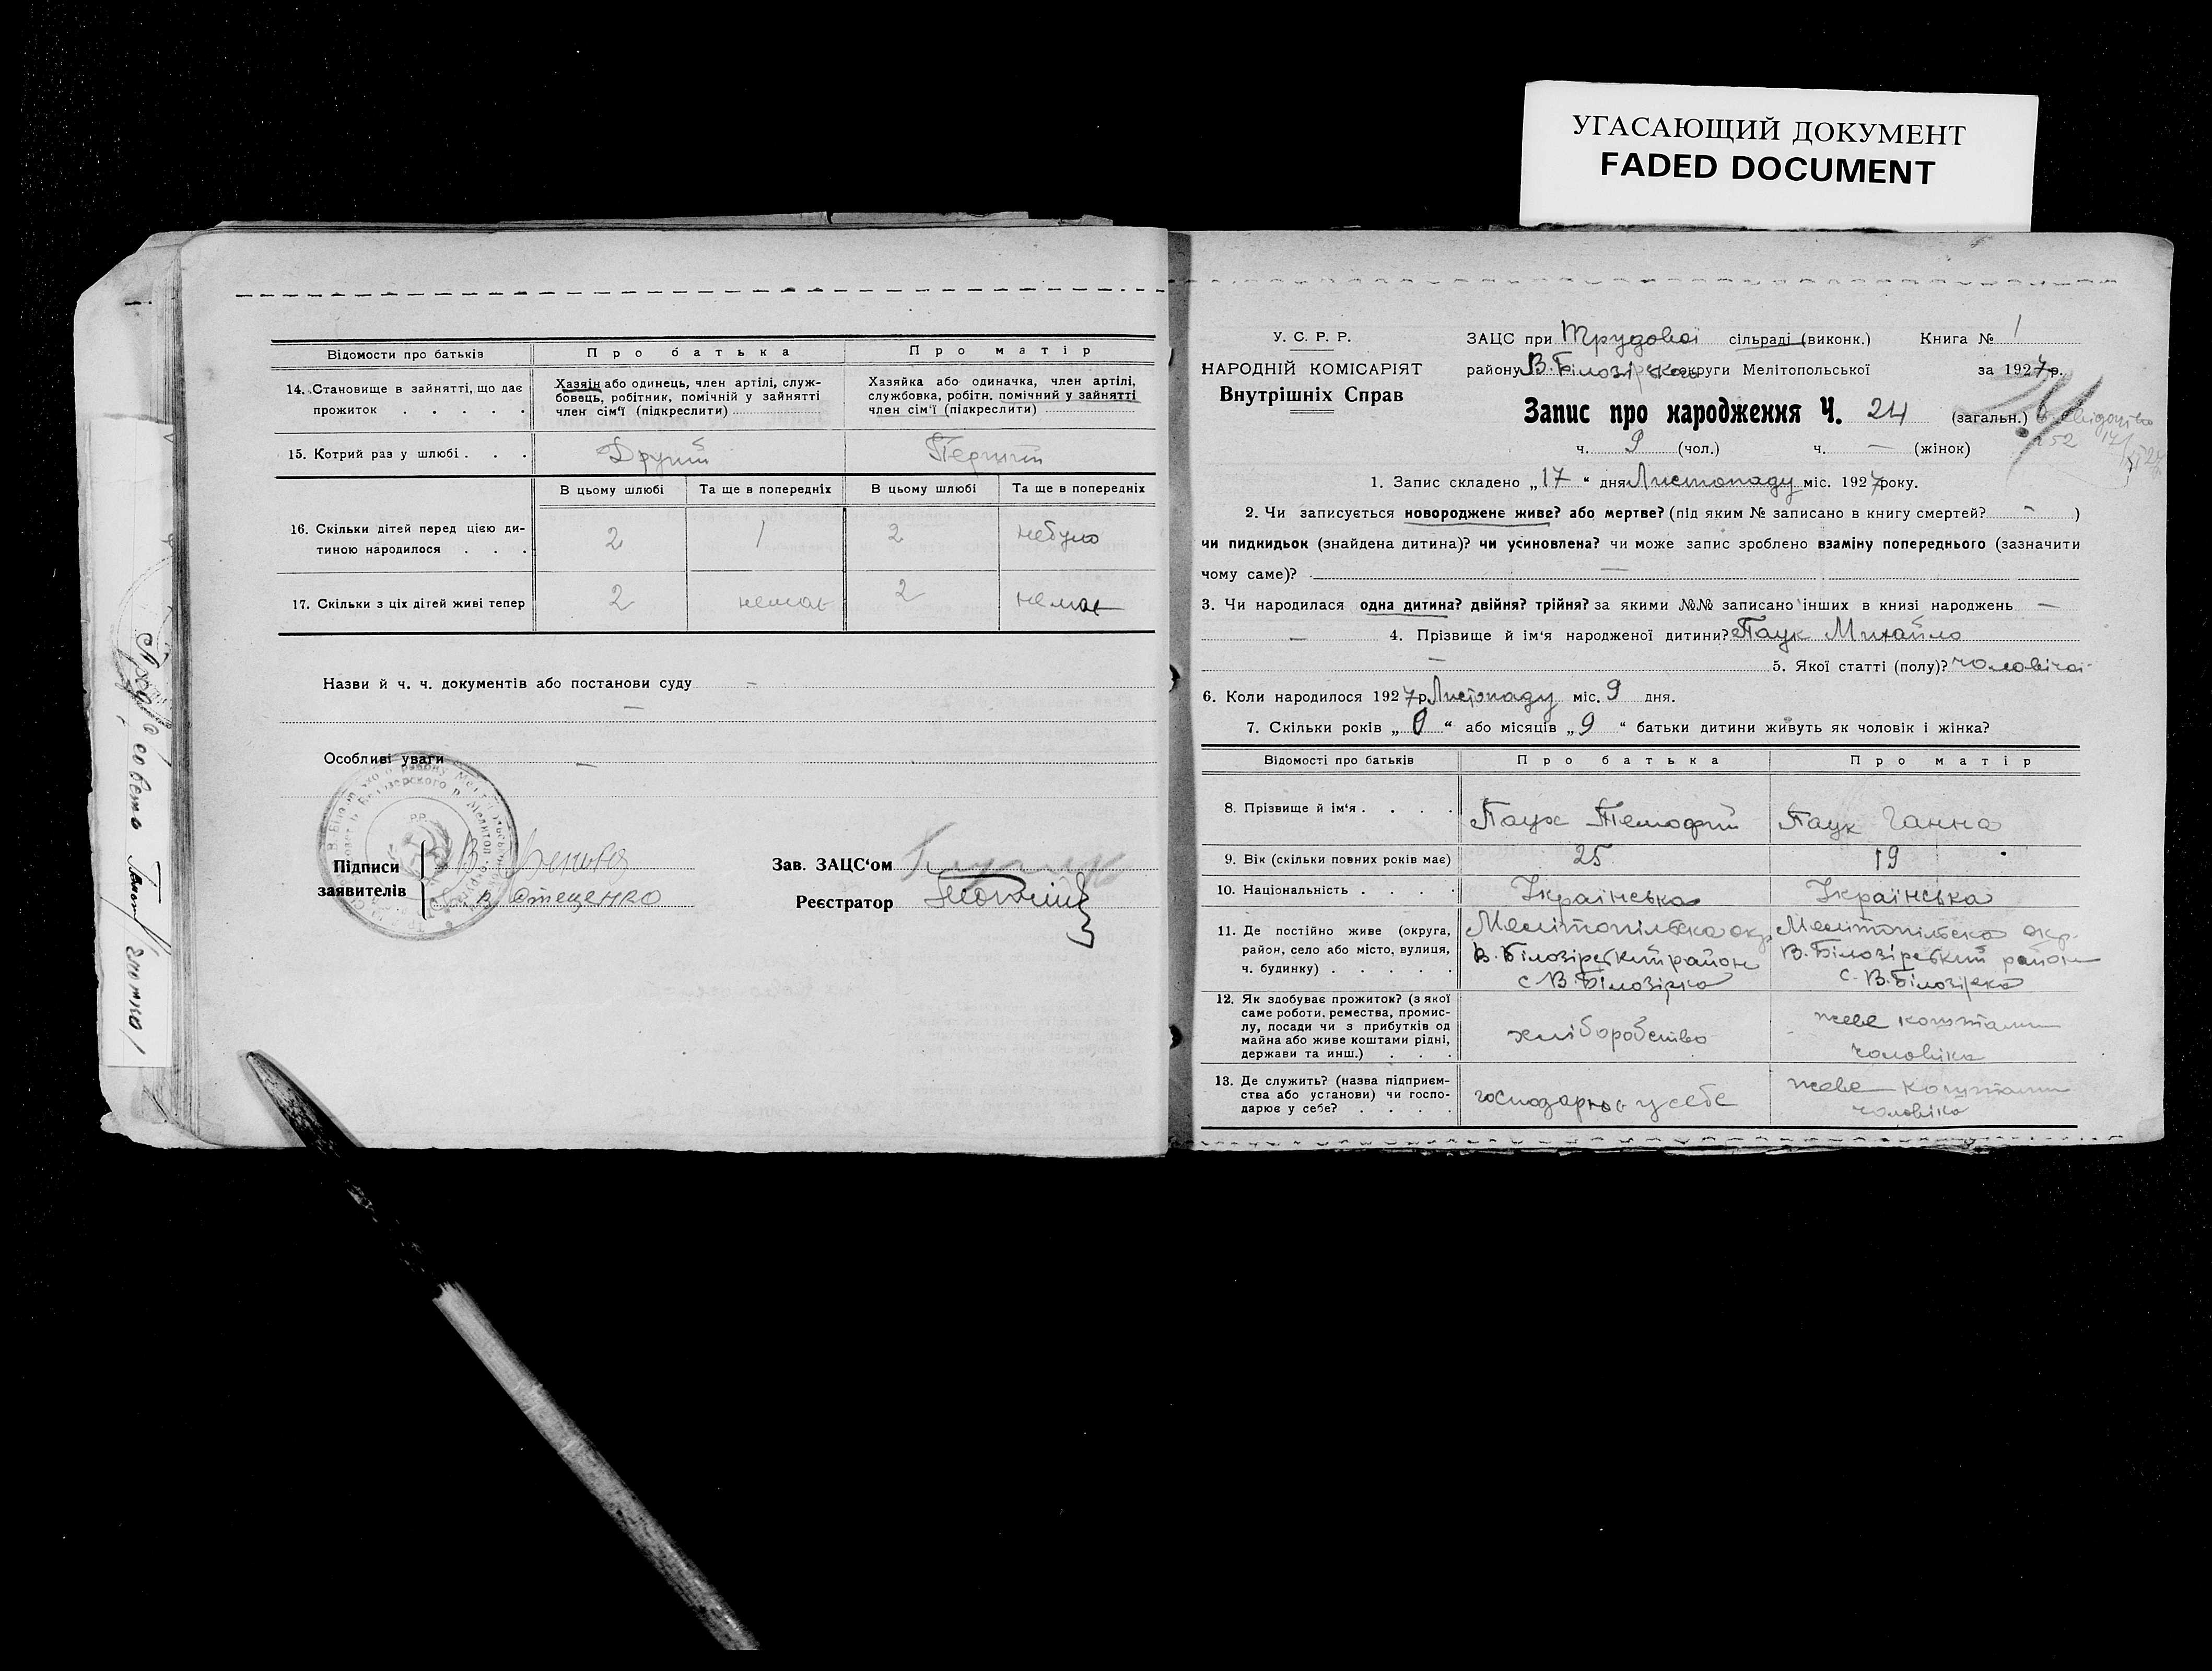 УГАСАЮЩИЙ ДОКУМЕНТ
FADED DOCUMENT
Відомости про батьків Про батька Про матір
14. Становище в зайнятті, що дає прожиток . . . . .
Хазяін або одинець, член артілі, служ-
бовець, робітник, помічній у зайнятті
член сім'ї (підкреслити)
Хазяйка або одиначка, член артілі,
службовка, робітн. помічний у зайнятті
член сім'ї (підкреслити)
15. Котрий раз у шлюбі . . . Другий Перший
В цьому шлюбі Та ще в попередніх В цьому шлюбі Та ще в попередніх
16. Скільки дітей перед цією ди-
тиною народилося . . . 2 1 2 небуло
17. Скільки з ціх дітей живі тепер 2 немає 2 немає
Назви й ч. ч. документів або постанови суду —
—
Особливі уваги —
Підписи
заявителів
В Стеценко
Зав. ЗАЦС'ом
Реєстратор
У. С. Р. Р.
НАРОДНІЙ КОМІСАРІЯТ
Внутрішніх Справ
ЗАЦС при Трудової сільраді (виконк.) Книга № 1
району В. Білозірської округи Мелітопольської за 1927 р.
Запис про народження Ч. 24 (загальн.)
ч. 9 (чол.) ч. — (жінок)
1. Запис складено „17" дня Листопаду міс. 1927 року.
2. Чи записується новороджене живе? або мертве? (під яким № записано в книгу смертей? - )
чи пидкидьок (знайдена дитина)? чи усиновлена? чи може запис зроблено взаміну попереднього (зазначити
чому саме)? —
3. Чи народилася одна дитина? двійня? трійня? за якими №№ записано інших в книзі народжень —
— 4. Прізвище й ім'я народженої дитини? Паук Михайло
— 5. Якої статті (полу)? чоловічої
6. Коли народилося 1927 р. Листопаду міс. 9 дня.
7. Скільки років „0" або місяців „9" батьки дитини живуть як чоловік і жінка?
Відомості про батьків Про батька Про матір
8. Прізвище й ім'я . . . . Паук Темофій Паук Ганна
9. Вік (скільки повних років має) 25 19
10. Національність . . . . Українська Українська
11. Де постійно живе (округа,
район, село або місто, вулиця,
ч. будинку) . . . . .
Мелітопільська окр.
В. Білозірський район
с В. Білозірка
Мелітопільська окр.
В. Білозірський район
с. В. Білозірка
12. Як здобуває прожиток? (з якої
саме роботи. ремества, промис-
лу, посади чи з прибутків од
майна або живе коштами рідні,
держави та инш.) . . .
хліборобство
живе коштами
чоловіка
13. Де служить? (назва підприєм-
ства або установи) чи госпо-
дарює у себе? . . . .
господарює у себе
живе коштами
чоловіка